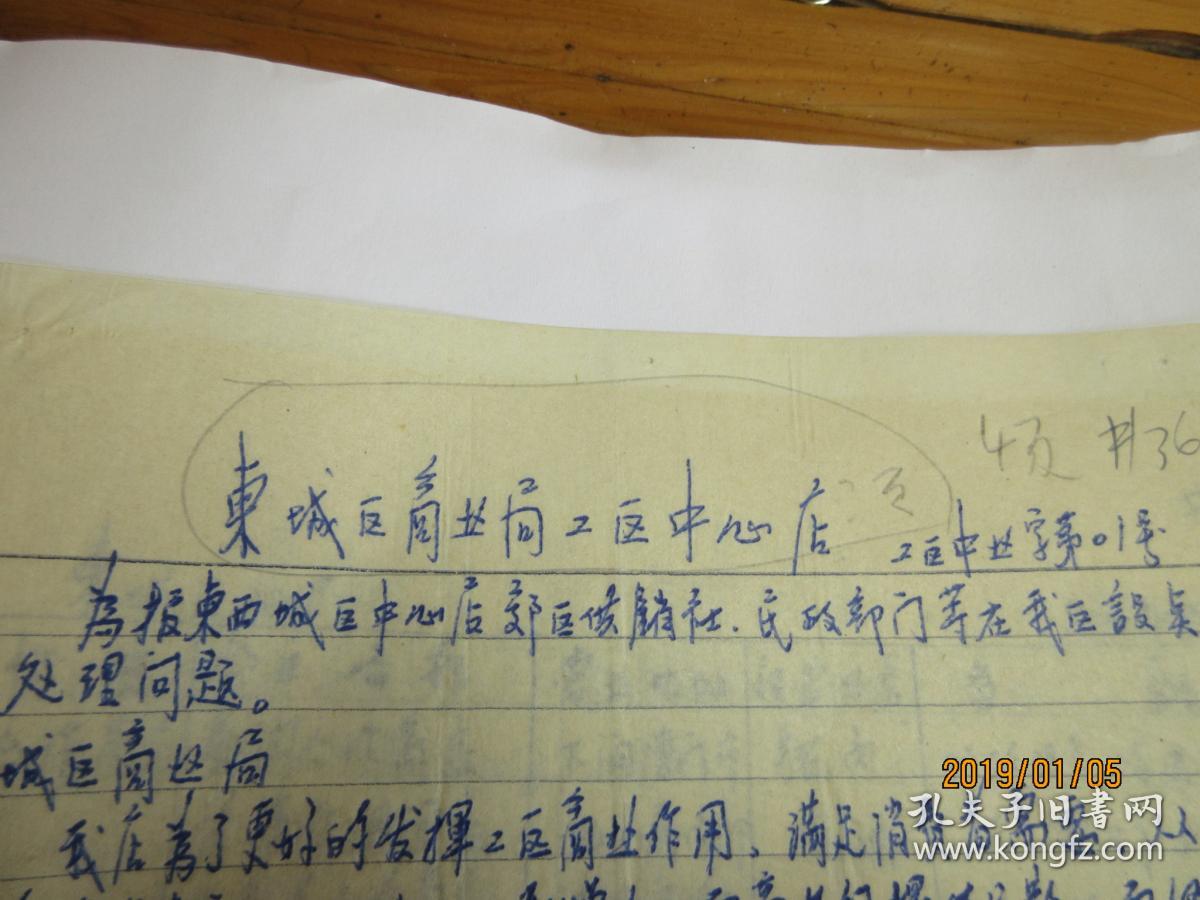 4页 #36
東城区商业局工区中心店
工区中业字第01号
為报東西城区中心店郊区供銷社、民政部门等在我区設点
处理问题。
城区商业局
我店為了更好的发揮工区商业作用、满足消费者需要、从
2019/01/05
孔夫子旧书网
www.kongfz.com